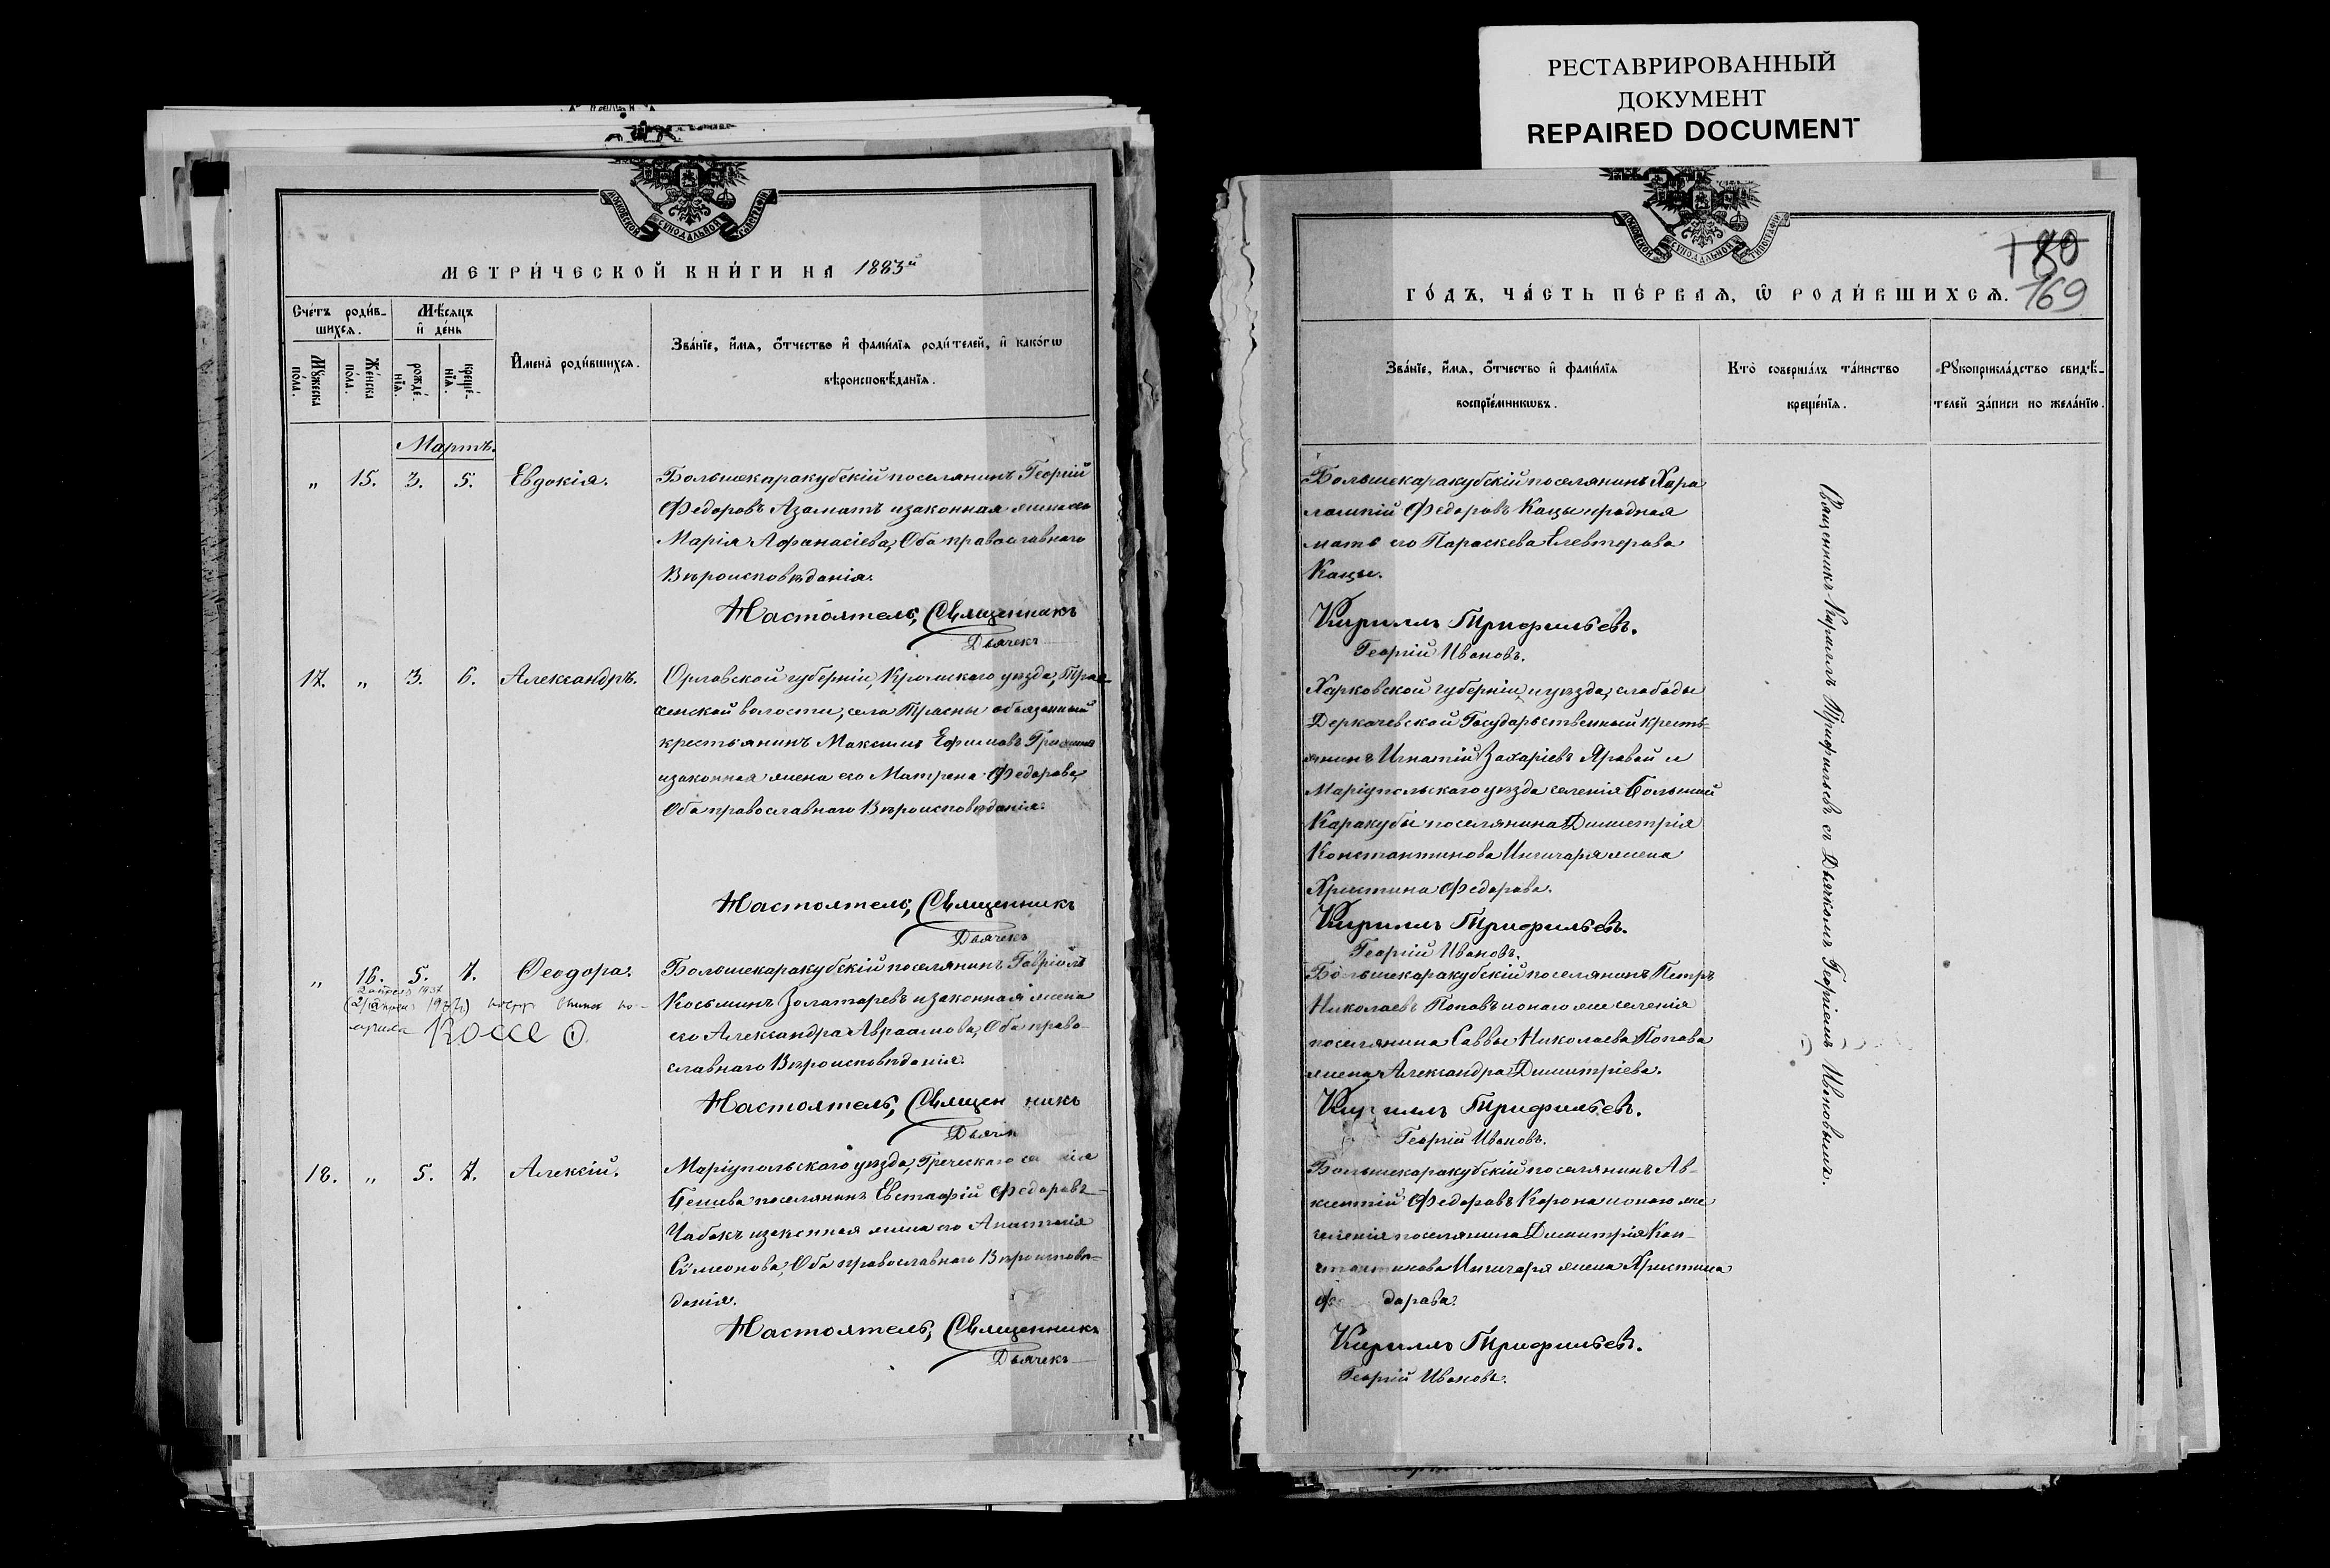 РЕСТАВРИРОВАННЫЙ
ДОКУМЕНТ
REPAIRED DOCUMENT
МОСКОВСКОЙ СУНОДАЛЬНОЙ
МЕТРИ́ЧЕСКОЙ КНИ́ГИ НА 1883й
Сче́тъ роди́в-
шихся.
Мѣ́сяцъ
и҆ де́нь
Мꙋ́жеска
по́ла.
Же́нска
по́ла.
рожде́-
нїѧ.
креще́-
нїѧ.
И҆мена̀ роди́вшихсѧ.
Зва́нїе, и҆́мѧ, ѻ҆́тчество и҆ фами́лїѧ роди́телей, и҆ како́гѡ
вѣроисповѣ́данїѧ.
Мартъ.
„ 15. 3. 5. Евдокія.
Большекаракубскій поселянинъ Георгій
Федоровъ Азаматъ и законная жена его
Марія Афанасіева, Оба православнаго
Вѣроисповѣданія.
Настоятель, Священникъ
Дьячекъ
17. „ 3. 6. Александръ.
Орловской губерніи, Кромскаго уѣзда,
волости, села обязанный
крестьянинъ Максимъ Ефимовъ
и законная жена его Матрена Федорова,
Оба православнаго Вѣроисповѣданія.
Настоятель, Священникъ
Дьячекъ
„ 16. 5. 7. Ѳеодора.
Большекаракубскій поселянинъ Гавріилъ
Косьминъ Золатаревъ и законная жена
его Александра Авраамова, Оба право-
славнаго Вѣроисповѣданія.
2 апреля 1937
Настоятель, Священникъ
Дьячекъ
18. „ 5. 7. Алексій.
Маріупольскаго уѣзда, Греческаго селенія
поселянинъ Евстафій Федоровъ
Чабакъ и законная жена его Анастасія
Сѵмеонова, Оба православнаго Вѣроисповѣ-
данія.
Настоятель, Священникъ
Дьячекъ
МОСКОВСКОЙ СУНОДАЛЬНОЙ ТИПОГРАФІИ
180
169
ГО́ДЪ, ЧА́СТЬ ПЕ́РВАѦ, Ѽ РОДИ́ВШИХСѦ.
Зва́нїе, и҆́мѧ, ѻ҆́тчество и҆ фами́лїѧ
воспрїе́мникѡвъ.
Кто̀ соверша́лъ та́инство
креще́нїѧ.
Рꙋкоприкла́дство свидѣ́-
телей за́писи по жела́нїю.
Большекаракубскій поселянинъ Хара
лампій Федоровъ Кацы и родная
мать его Параскева Елевтерова
Кацы.
Кириллъ Трифильевъ.
Георгій Ивановъ.
Харковской губерніи, и уѣзда, слабоды
Деркачевской Государьственный кресть-
янинъ Игнатій Захаріевъ Яравой и
Маріупольскаго уѣзда селенія Большой
Каракубы поселянина Димитрія
Константинова жена
Христина Федорова.
Кириллъ Трифильевъ.
Георгій Ивановъ.
Большекаракубскій поселянинъ Петръ
Николаевъ Поповъ и онаго же селенія
поселянина Саввы Николаева Попова
жена Александра Димитріева.
Кириллъ Трифильевъ.
Георгій Ивановъ.
Большекаракубскій поселянинъ Ав-
ксентій Федоровъ Корона и онаго же
селенія поселянина Димитрія Кон-
стантинова жена Христина
Федорова.
Кириллъ Трифильевъ.
Георгій Ивановъ.
Священникъ Кириллъ Трифильевъ съ Дьячкомъ Георгіемъ Ивановымъ.